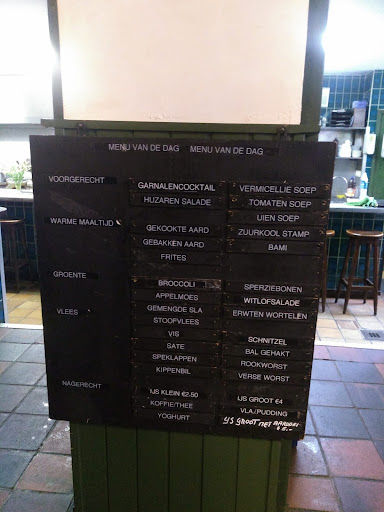 MENU VAN DE DAG MENU VAN DE DAG
VOORGERECHT GARNALENCOCKTAIL VERMICELLIE SOEP
HUZAREN SALADE TOMATEN SOEP
UIEN SOEP
WARME MAALTIJD GEKOOKTE AARD ZUURKOOL STAMP
GEBAKKEN AARD BAMI
FRITES
GROENTE BROCCOLI SPERZIEBONEN
APPELMOES WITLOFSALADE
GEMENGDE SLA ERWTEN WORTELEN
VLEES STOOFVLEES
VIS SCHNITZEL
SATE BAL GEHAKT
SPEKLAPPEN ROOKWORST
KIPPENBIL VERSE WORST
NAGERECHT IJS KLEIN €2.50 IJS GROOT €4
KOFFIE/THEE VLA/PUDDING
YOGHURT IJS GROOT MET